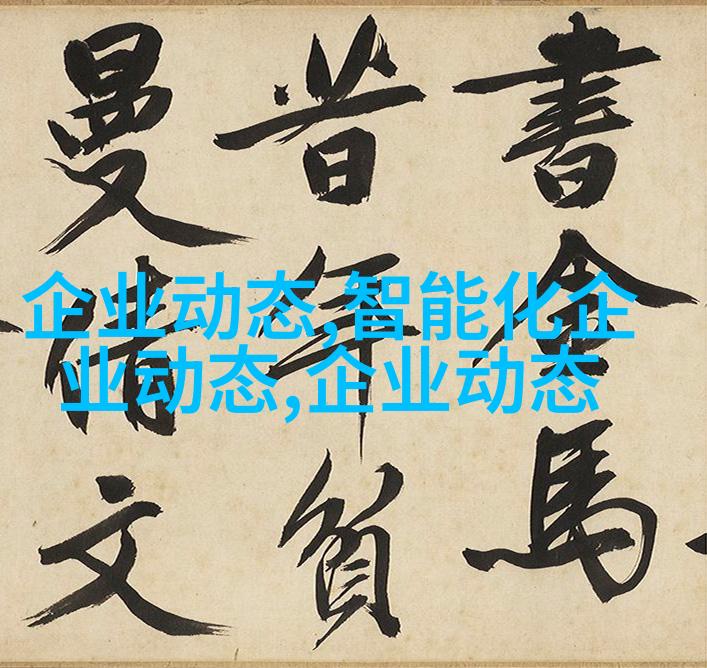 書金馬
昔年負
曼倩文
企业动态,智能化企
业动态,企业动态